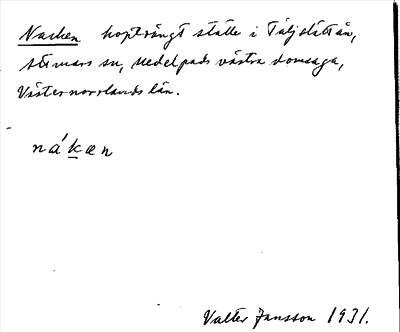 Nacken hopträngt ställe i Täljeslättån,
Stimars sn, Medelpads västra domsaga,
Västernorrlands län.
nák̲æn
Valter Jansson 1931.